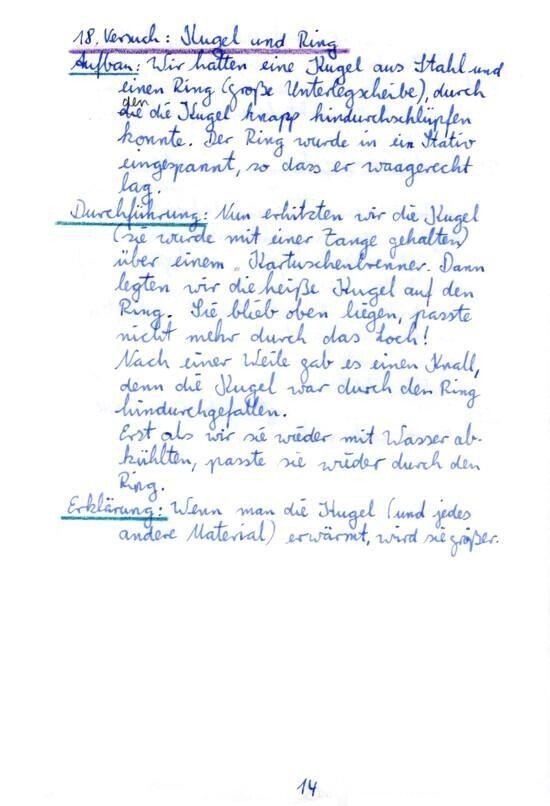 18. Versuch: Kugel und Ring
Aufbau: Wir hatten eine Kugel aus Stahl und
einen Ring (große Unterlegscheibe), durch
den die Kugel knapp hindurchschlüpfen
konnte. Der Ring wurde in ein Stativ
eingespannt, so dass er waagerecht
lag.
Durchführung: Nun erhitzten wir die Kugel
(sie wurde mit einer Zange gehalten)
über einem Kartuschenbrenner. Dann
legten wir die heiße Kugel auf den
Ring. Sie blieb oben liegen, passte
nicht mehr durch das Loch!
Nach einer Weile gab es einen Knall,
denn die Kugel war durch den Ring
hindurchgefallen.
Erst als wir sie wieder mit Wasser ab-
kühlten, passte sie wieder durch den
Ring.
Erklärung: Wenn man die Kugel (und jedes
andere Material) erwärmt, wird sie größer.
14